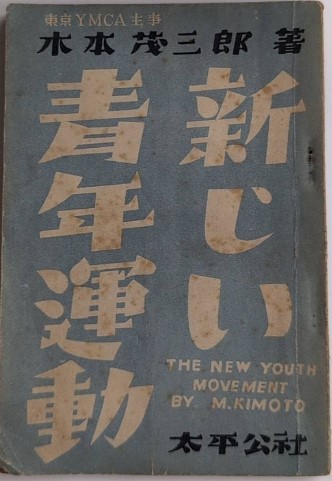 東京YMCA主事
木本茂三郎 著
新しい
青年運動
THE NEW YOUTH
MOVEMENT
BY M.KIMOTO
太平公社